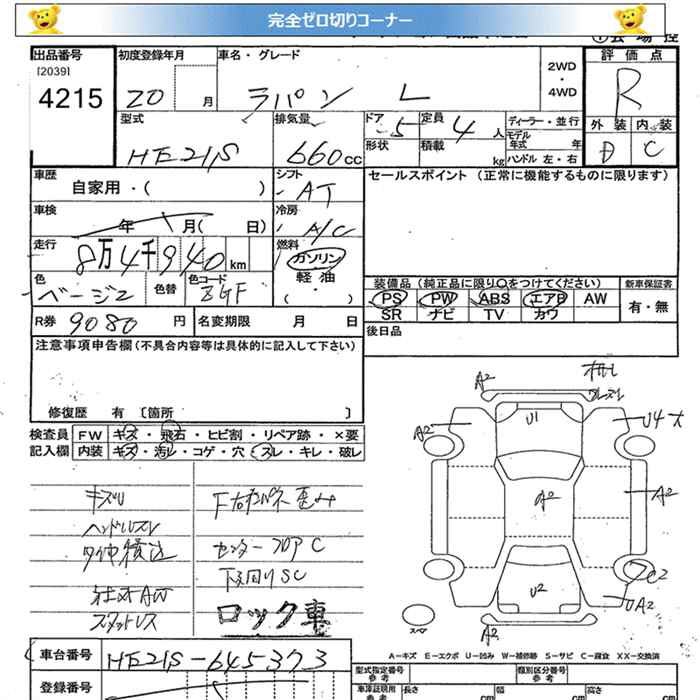 完全ゼロ切りコーナー
出品番号
[2039]
4215
初度登録年月
20 月
車名・グレード
ラパン L
2WD
・
4WD
評価点
R
外装 内装
D C
型式
HE21S
排気量
660cc
ドア 5
定員 4人
形状
積載 kg
ディーラー・並行
モデル
年式 年
ハンドル 左・右
車歴
自家用・( )
シフト
AT
セールスポイント (正常に機能するものに限ります)
車検
年 月( 日)
冷房
A/C
走行
8万4千940km
燃料
ガソリン
軽油
( ・ )
色
ベージュ
色替
色コード
ZGF
装備品 (純正品に限り○をつけてください)
新車保証書
PS PW ABS エアB AW
SR ナビ TV カワ
有・無
R券 9080円
名変期限 月 日
後日品
注意事項申告欄(不具合内容等は具体的に記入して下さい)
修復歴 有 [箇所 ]
検査員
記入欄
FW キズ・飛石・ヒビ割・リペア跡・×要
内装 キズ・汚レ・コゲ・穴・スレ・キレ・破レ
キズU
ハンドルスレ
センターフロアC
下回りSC
社外AW
スタットレス
ロック車
A2
U1
A2
U4
A2
A2
U2
C2
UA2
A2
スペア
A-キズ E-エクボ U-凹み W-補修跡 S-サビ C-腐食 XX-交換済
車台番号
HE21S-645373
登録番号
型式指定番号
参考
類別区分番号
参考
車庫証明用
参考
長さ cm
幅 cm
高さ cm